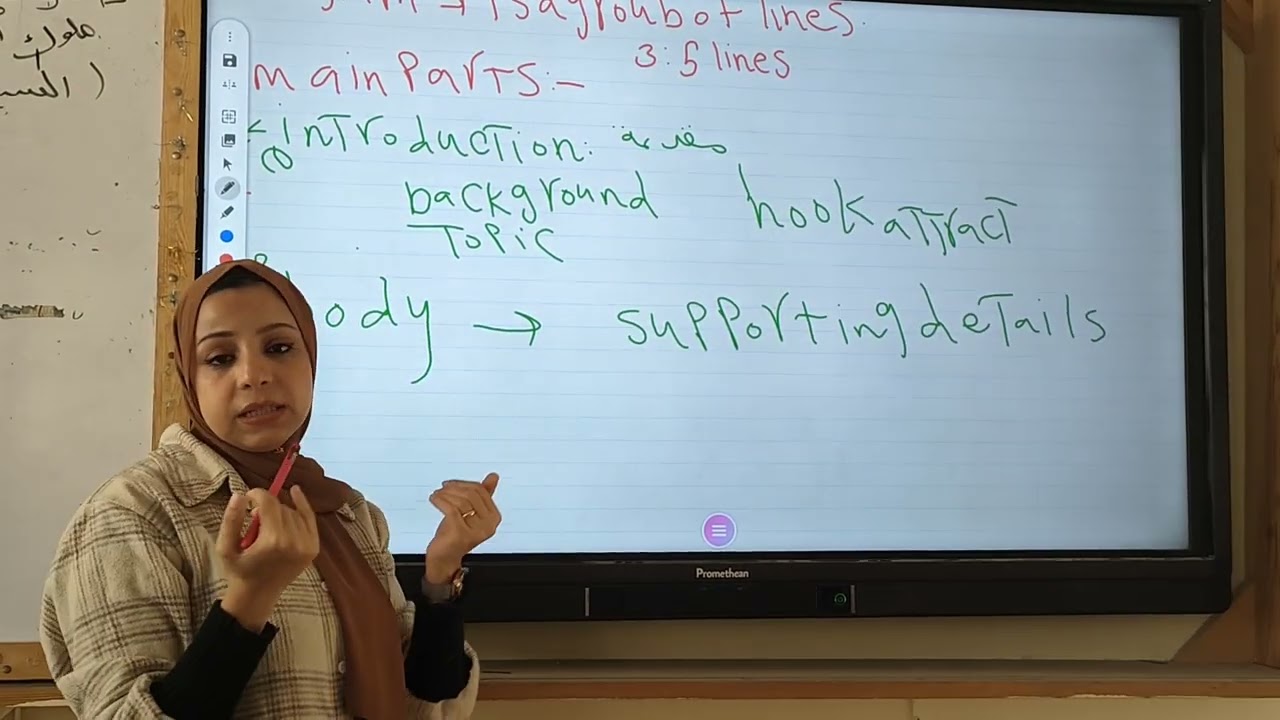 ملوك
( السيد
is a group of lines.
3:5 lines
main Parts:-
introduction: مقدمة
background
Topic
hook attract
body → supporting details
Promethean